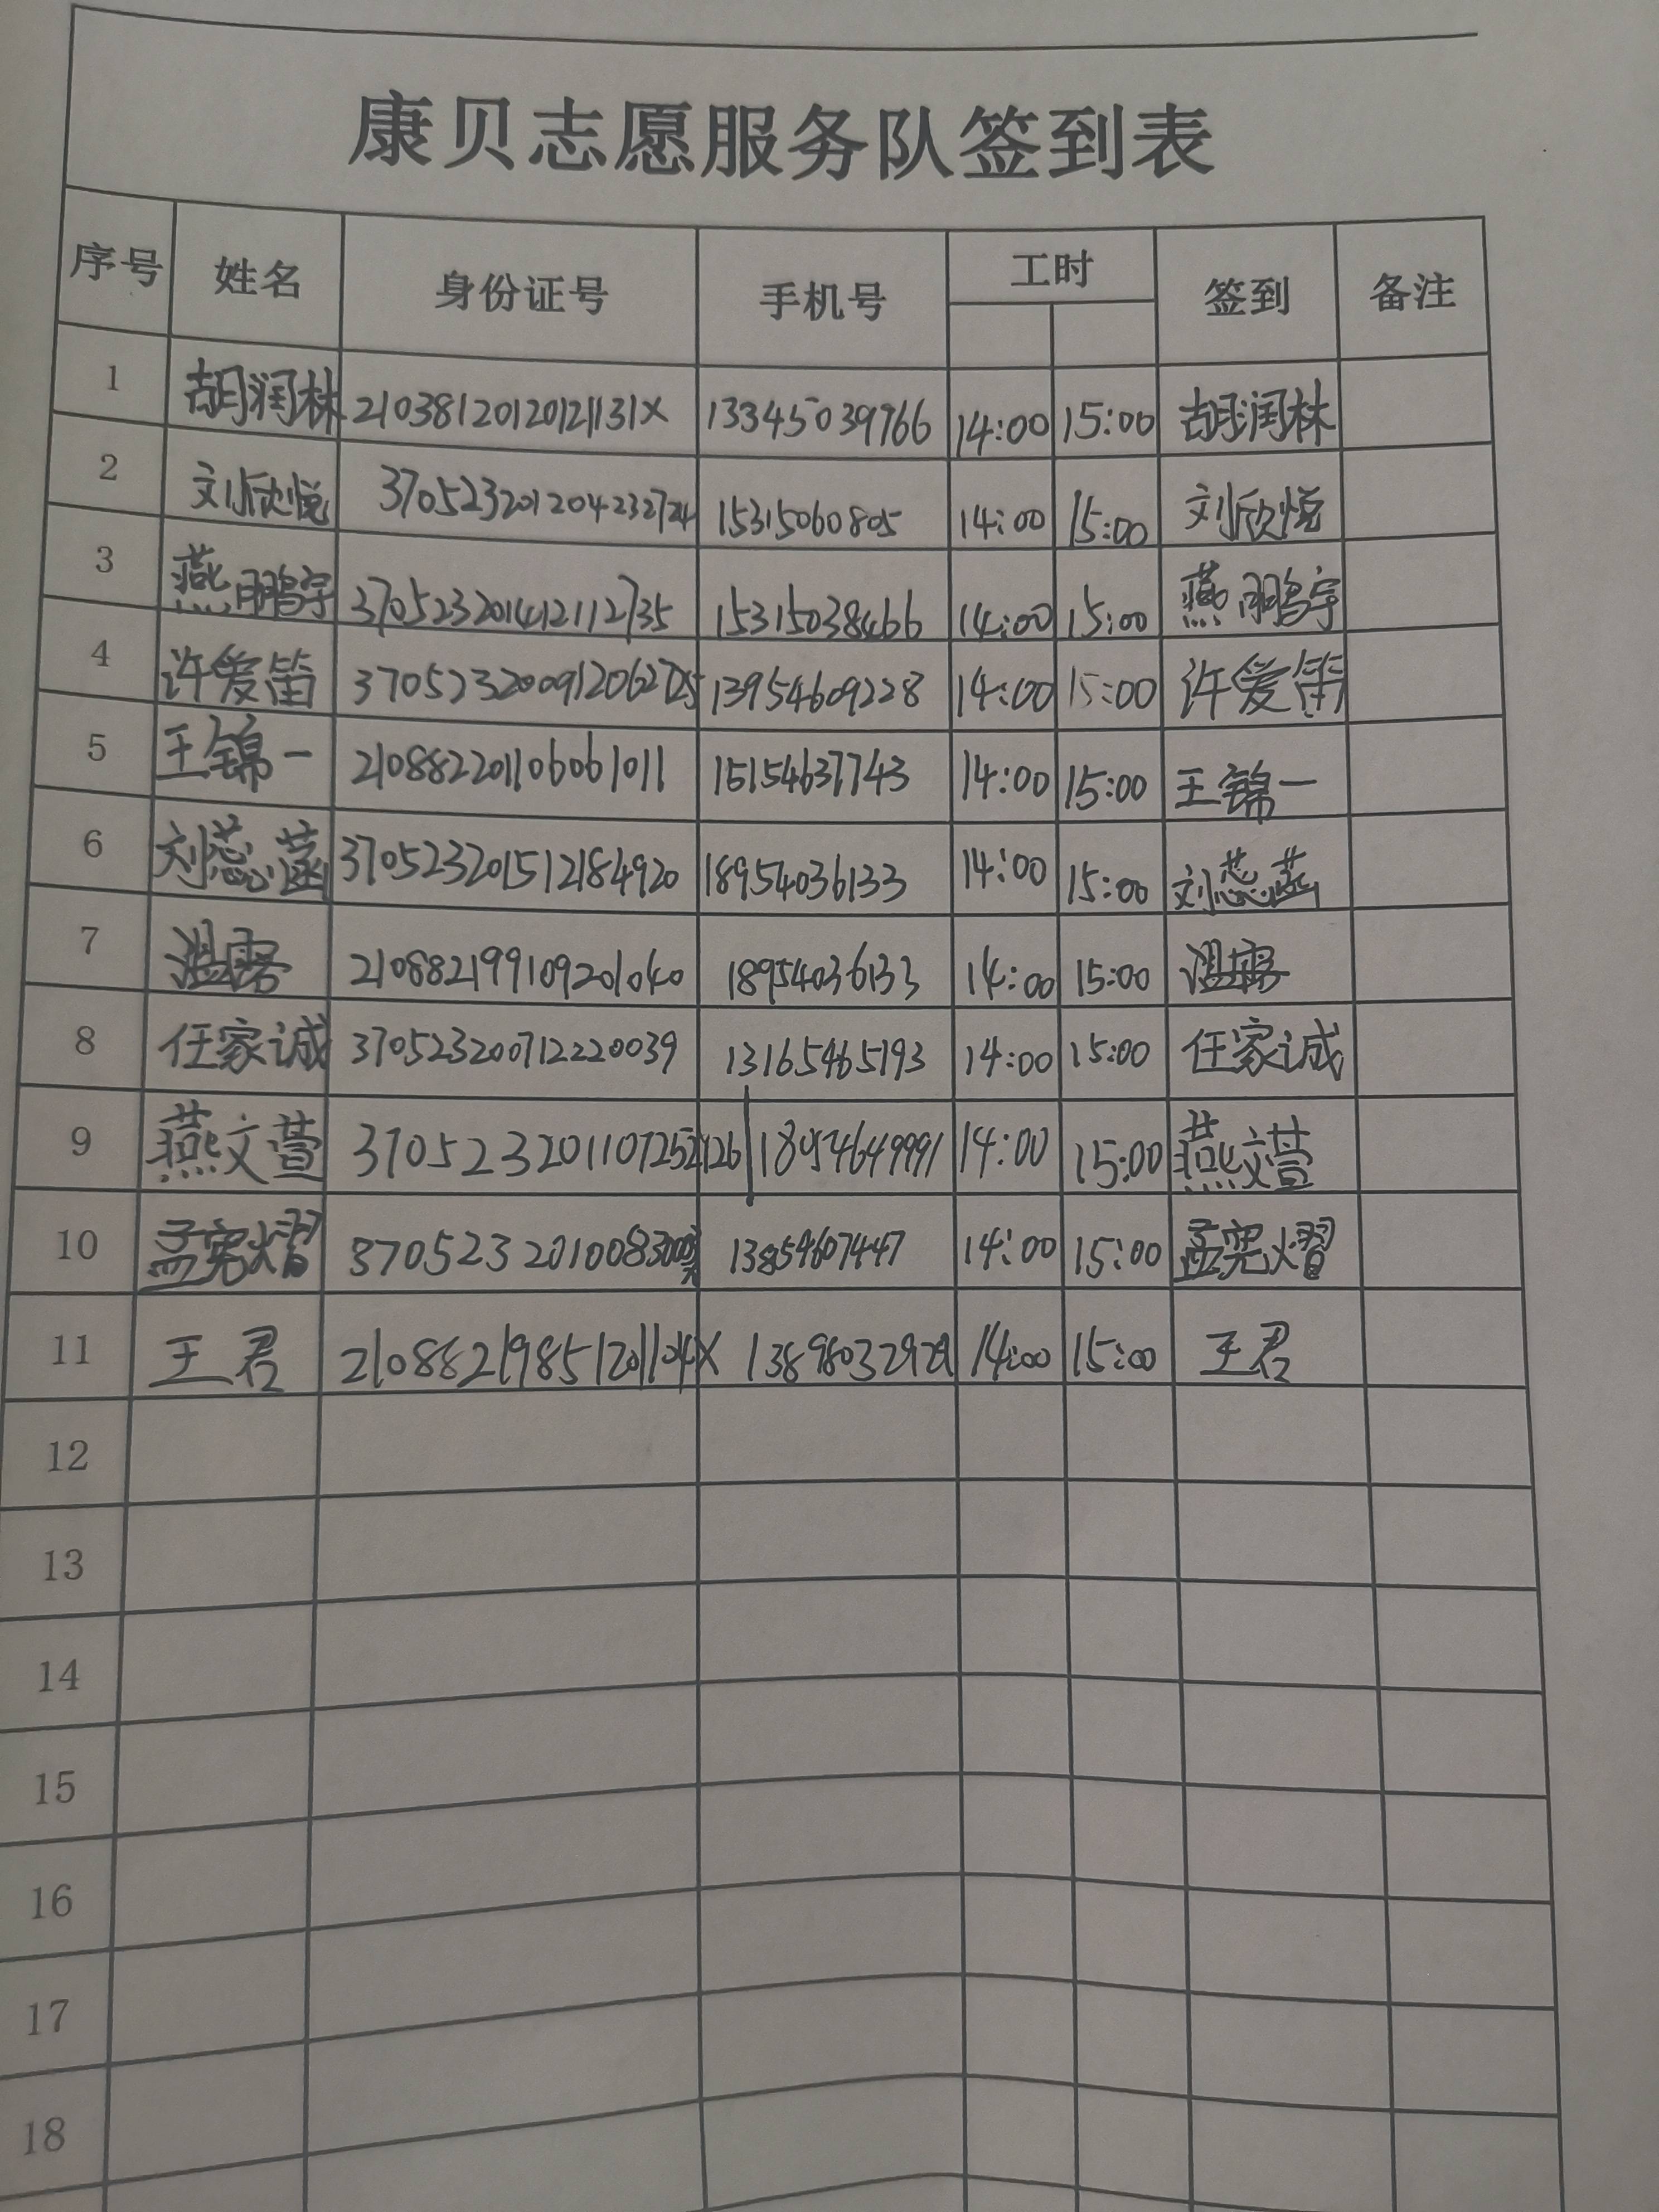 康贝志愿服务队签到表
序号 姓名 身份证号 手机号 工时 签到 备注
1 胡润林 21038120120121131X 13345039766 14:00 15:00 胡润林
2 刘欣悦 370523201204232724 15315060805 14:00 15:00 刘欣悦
3 燕鹏宇 370523201412112735 15315038466 14:00 15:00 燕鹏宇
4 许爱笛 370523200912062725 13954609228 14:00 15:00 许爱笛
5 王锦一 210882201106061011 15154637743 14:00 15:00 王锦一
6 刘蕊菡 370523201512184920 18954036133 14:00 15:00 刘蕊菡
7 温露 210882199109201040 18954036133 14:00 15:00 温露
8 任家诚 370523200712220039 13165465193 14:00 15:00 任家诚
9 燕文萱 18054649991 14:00 15:00 燕文萱
10 孟宪熠 13854607447 14:00 15:00 孟宪熠
11 王君 21088219851201104X 14:00 15:00 王君
12
13
14
15
16
17
18